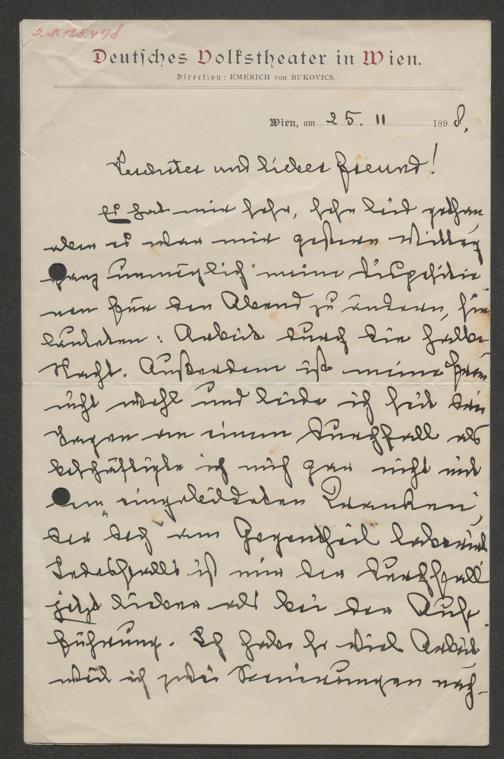 J.N. 125.498
Deutsches Volkstheater in Wien.
Direction: EMERICH von BUKOVICS.
Wien, am 25. 11 1898,
Verehrter und lieber Freund!
Es hat mir sehr, sehr leid gethan
aber es war mir gestern Mittag
ganz unmöglich meine Dispositio-
nen für den Abend zu ändern, sie
lauteten: Arbeit durch die halbe
Nacht. Außerdem ist meine Frau
nicht wohl und leide ich seit drei
Tagen an einem Durchfall als
beschäftigte ich mich gar nicht mit
dem "eingebildeten Kranken",
der doch am Gegentheil laborirt
Jedesfalls ist mir der Durchfall
jetzt lieber als bei der Auf-
führung. Ich habe so viel Arbeit
weil ich zwei Premièren nach-